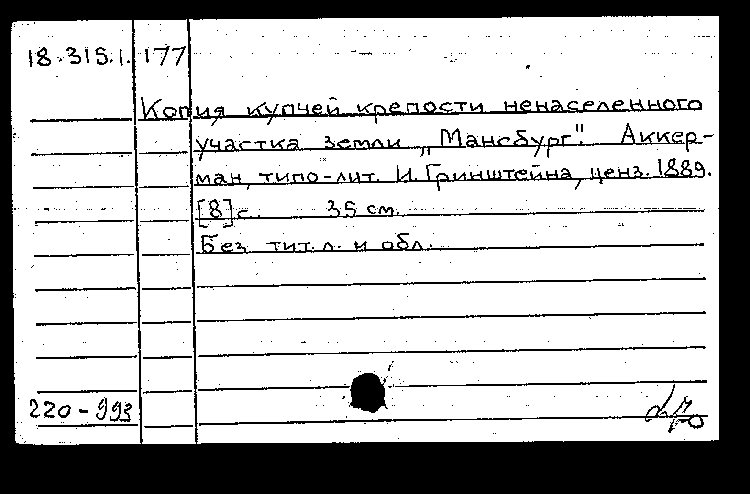 18.315.1. 177
Копия купчей крепости ненаселенного
участка земли „Мансбург". Аккер-
ман, типо-лит. И. Гринштейна, ценз. 1889.
[8] с. 35 см.
Без тит. л. и обл.
220-993